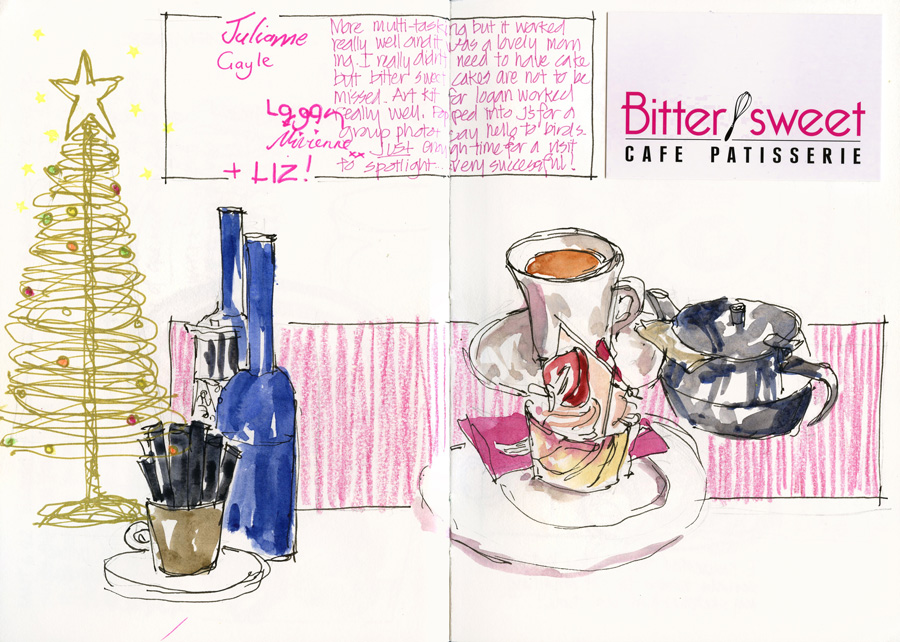 Julianne
Gayle
Logan
& Vivienne xx
+ LIZ!
More multi-tasking but it worked
really well and it was a lovely morn
ing. I really didn't need to have cake
but bitter sweet cakes are not to be
missed. Art kit for logan worked
really well. Popped into J's for a
group photo & say hello to birds.
Just enough time for a visit
to spotlight - very successful!
Bitter sweet
CAFE PATISSERIE